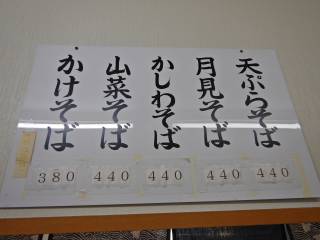 天ぷらそば
月見そば
かしわそば
山菜そば
かけそば
440
440
440
440
380